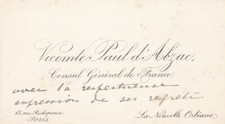 Vicomte Paul d'Abzac,
Consul Général de France
avec la respectueuse
expression de ses regrets
Paris
La Nouvelle Orléans